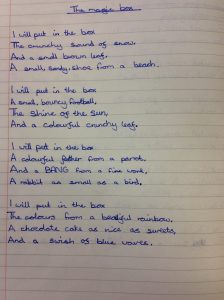 The magic box
I will put in the box
The crunchy sound of snow.
And a small brown leaf,
A small, sandy, shoe from a beach.
I will put in the box
A small, bouncy football,
The shine of the sun,
And a colourful crunchy leaf,
I will put in the box
A colourful fether from a parrot,
And a BANG from a fire work,
A rabbit as small as a bird,
I will put in the box
The colours from a beatiful rainbow,
A chocolate cake as nice as sweets,
And a swish of blue waves.